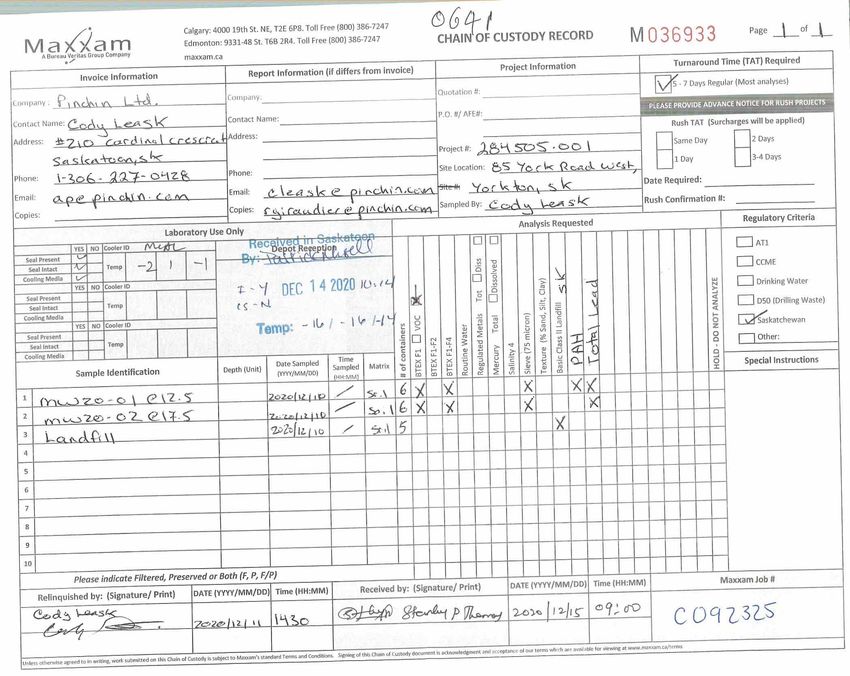 Maxxam
A Bureau Veritas Group Company
Calgary: 4000 19th St. NE, T2E 6P8. Toll Free (800) 386-7247
Edmonton: 9331-48 St. T6B 2R4. Toll Free (800) 386-7247
maxxam.ca
0641
CHAIN OF CUSTODY RECORD
M 036933
Page 1 of 1
Invoice Information
Report Information (if differs from invoice)
Project Information
Turnaround Time (TAT) Required
Company: Pinchin Ltd.
Contact Name: Cody Leask
Address: #210 cardinal crescent
Saskatoon, SK
Phone: 1-306-227-0428
Email: ap@pinchin.com
Copies:
Company:
Contact Name:
Address:
Phone:
Email: cleask@pinchin.com
Copies: rgiraudier@pinchin.com
Quotation #:
P.O. #/ AFE#:
Project #: 284505.001
Site Location: 85 York Road West,
Site #: Yorkton, SK
Sampled By: Cody Leask
5 - 7 Days Regular (Most analyses)
PLEASE PROVIDE ADVANCE NOTICE FOR RUSH PROJECTS
Rush TAT (Surcharges will be applied)
Same Day
2 Days
1 Day
3-4 Days
Date Required:
Rush Confirmation #:
Laboratory Use Only
Analysis Requested
Regulatory Criteria
YES NO Cooler ID
Seal Present
Seal Intact
Cooling Media
Temp -2 1 -1
YES NO Cooler ID
Seal Present
Seal Intact
Cooling Media
Temp
YES NO Cooler ID
Seal Present
Seal Intact
Cooling Media
Temp
Received in Saskatoon
Depot Reception
By:
DEC 14 2020 10:14
Temp: -16/-16/-14
# of containers
BTEX F1 VOC
BTEX F1-F2
BTEX F1-F4
Routine Water
Regulated Metals Tot Diss
Mercury Total Dissolved
Salinity 4
Sieve (75 micron)
Texture (% Sand, Silt, Clay)
Basic Class II Landfill SK
PAH
Total Lead
HOLD - DO NOT ANALYZE
AT1
CCME
Drinking Water
D50 (Drilling Waste)
Saskatchewan
Other:
Special Instructions
Sample Identification
Depth (Unit)
Date Sampled (YYYY/MM/DD)
Time Sampled (HH:MM)
Matrix
1 MW20-01 @12.5 2020/12/10 / Soil 6 X X X X X
2 MW20-02 @17.5 2020/12/10 / Soil 6 X X X X
3 Landfill 2020/12/10 / Soil 5 X
4
5
6
7
8
9
10
Please indicate Filtered, Preserved or Both (F, P, F/P)
Relinquished by: (Signature/ Print)
DATE (YYYY/MM/DD)
Time (HH:MM)
Received by: (Signature/ Print)
DATE (YYYY/MM/DD)
Time (HH:MM)
Maxxam Job #
Cody Leask
2020/12/11
1430
Stanley P Thomas
2020/12/15
09:00
C092325
Unless otherwise agreed to in writing, work submitted on this Chain of Custody is subject to Maxxam's standard Terms and Conditions. Signing of this Chain of Custody document is acknowledgment and acceptance of our terms which are available for viewing at www.maxxam.ca/terms